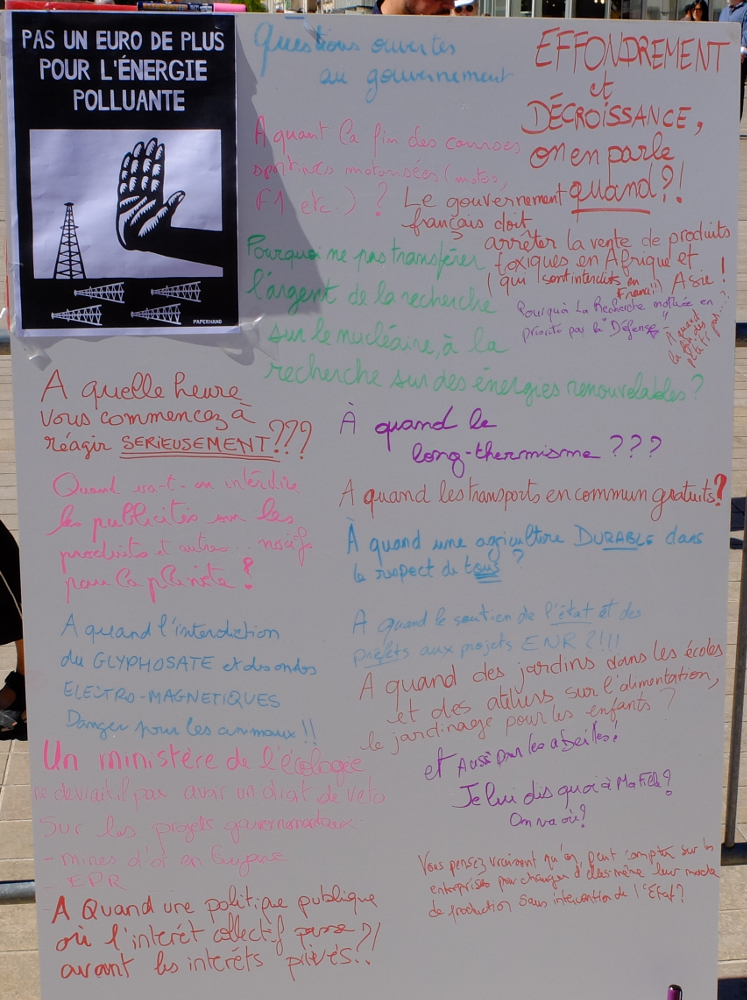 PAS UN EURO DE PLUS
POUR L'ÉNERGIE
POLLUANTE
PAPERHAND
Questions ouvertes
au gouvernement
EFFONDREMENT
et
DÉCROISSANCE,
on en parle
quand?!
A quant la fin des courses
sportives motorisées (motos,
F1 etc.) ?
Le gouvernement
français doit
arrêter la vente de produits
toxiques en Afrique et
(qui sont interdits en
France!) Asie !
Pourquoi ne pas transférer
l'argent de la recherche
sur le nucléaire, à la
recherche sur des énergies renouvelables ?
Pourquoi la Recherche motivée en
priorité par la "Défense"
A quand
la fin des
A quelle heure
vous commencez à
réagir SERIEUSEMENT???
À quand le
long-thermisme ???
Quand va-t-on interdire
les publicités sur les
produits et autres... nocifs
pour la planète !
A quand les transports en commun gratuits?
À quand une agriculture DURABLE dans
le respect de tous ?
A quand l'interdiction
du GLYPHOSATE et des ondes
ELECTRO-MAGNETIQUES
Danger pour les animaux !!
A quand le soutien de l'état et des
préfets aux projets ENR ?!!!
A quand des jardins dans les écoles
et des ateliers sur l'alimentation,
le jardinage pour les enfants ?
et Aussi pour les abeilles!
Je lui dis quoi à Ma Fille?
On va où?
Un ministère de l'écologie
ne devrait il pas avoir un droit de veto
sur les projets gouvernementaux:
- mines d'or en Guyane
- EPR
A Quand une politique publique
où l'intérêt collectif passe
avant les intérêts privés ?!..
Vous pensez vraiment qu'on peut compter sur les
entreprises pour changer d'elles même leur mode
de production sans intervention de l'Etat?